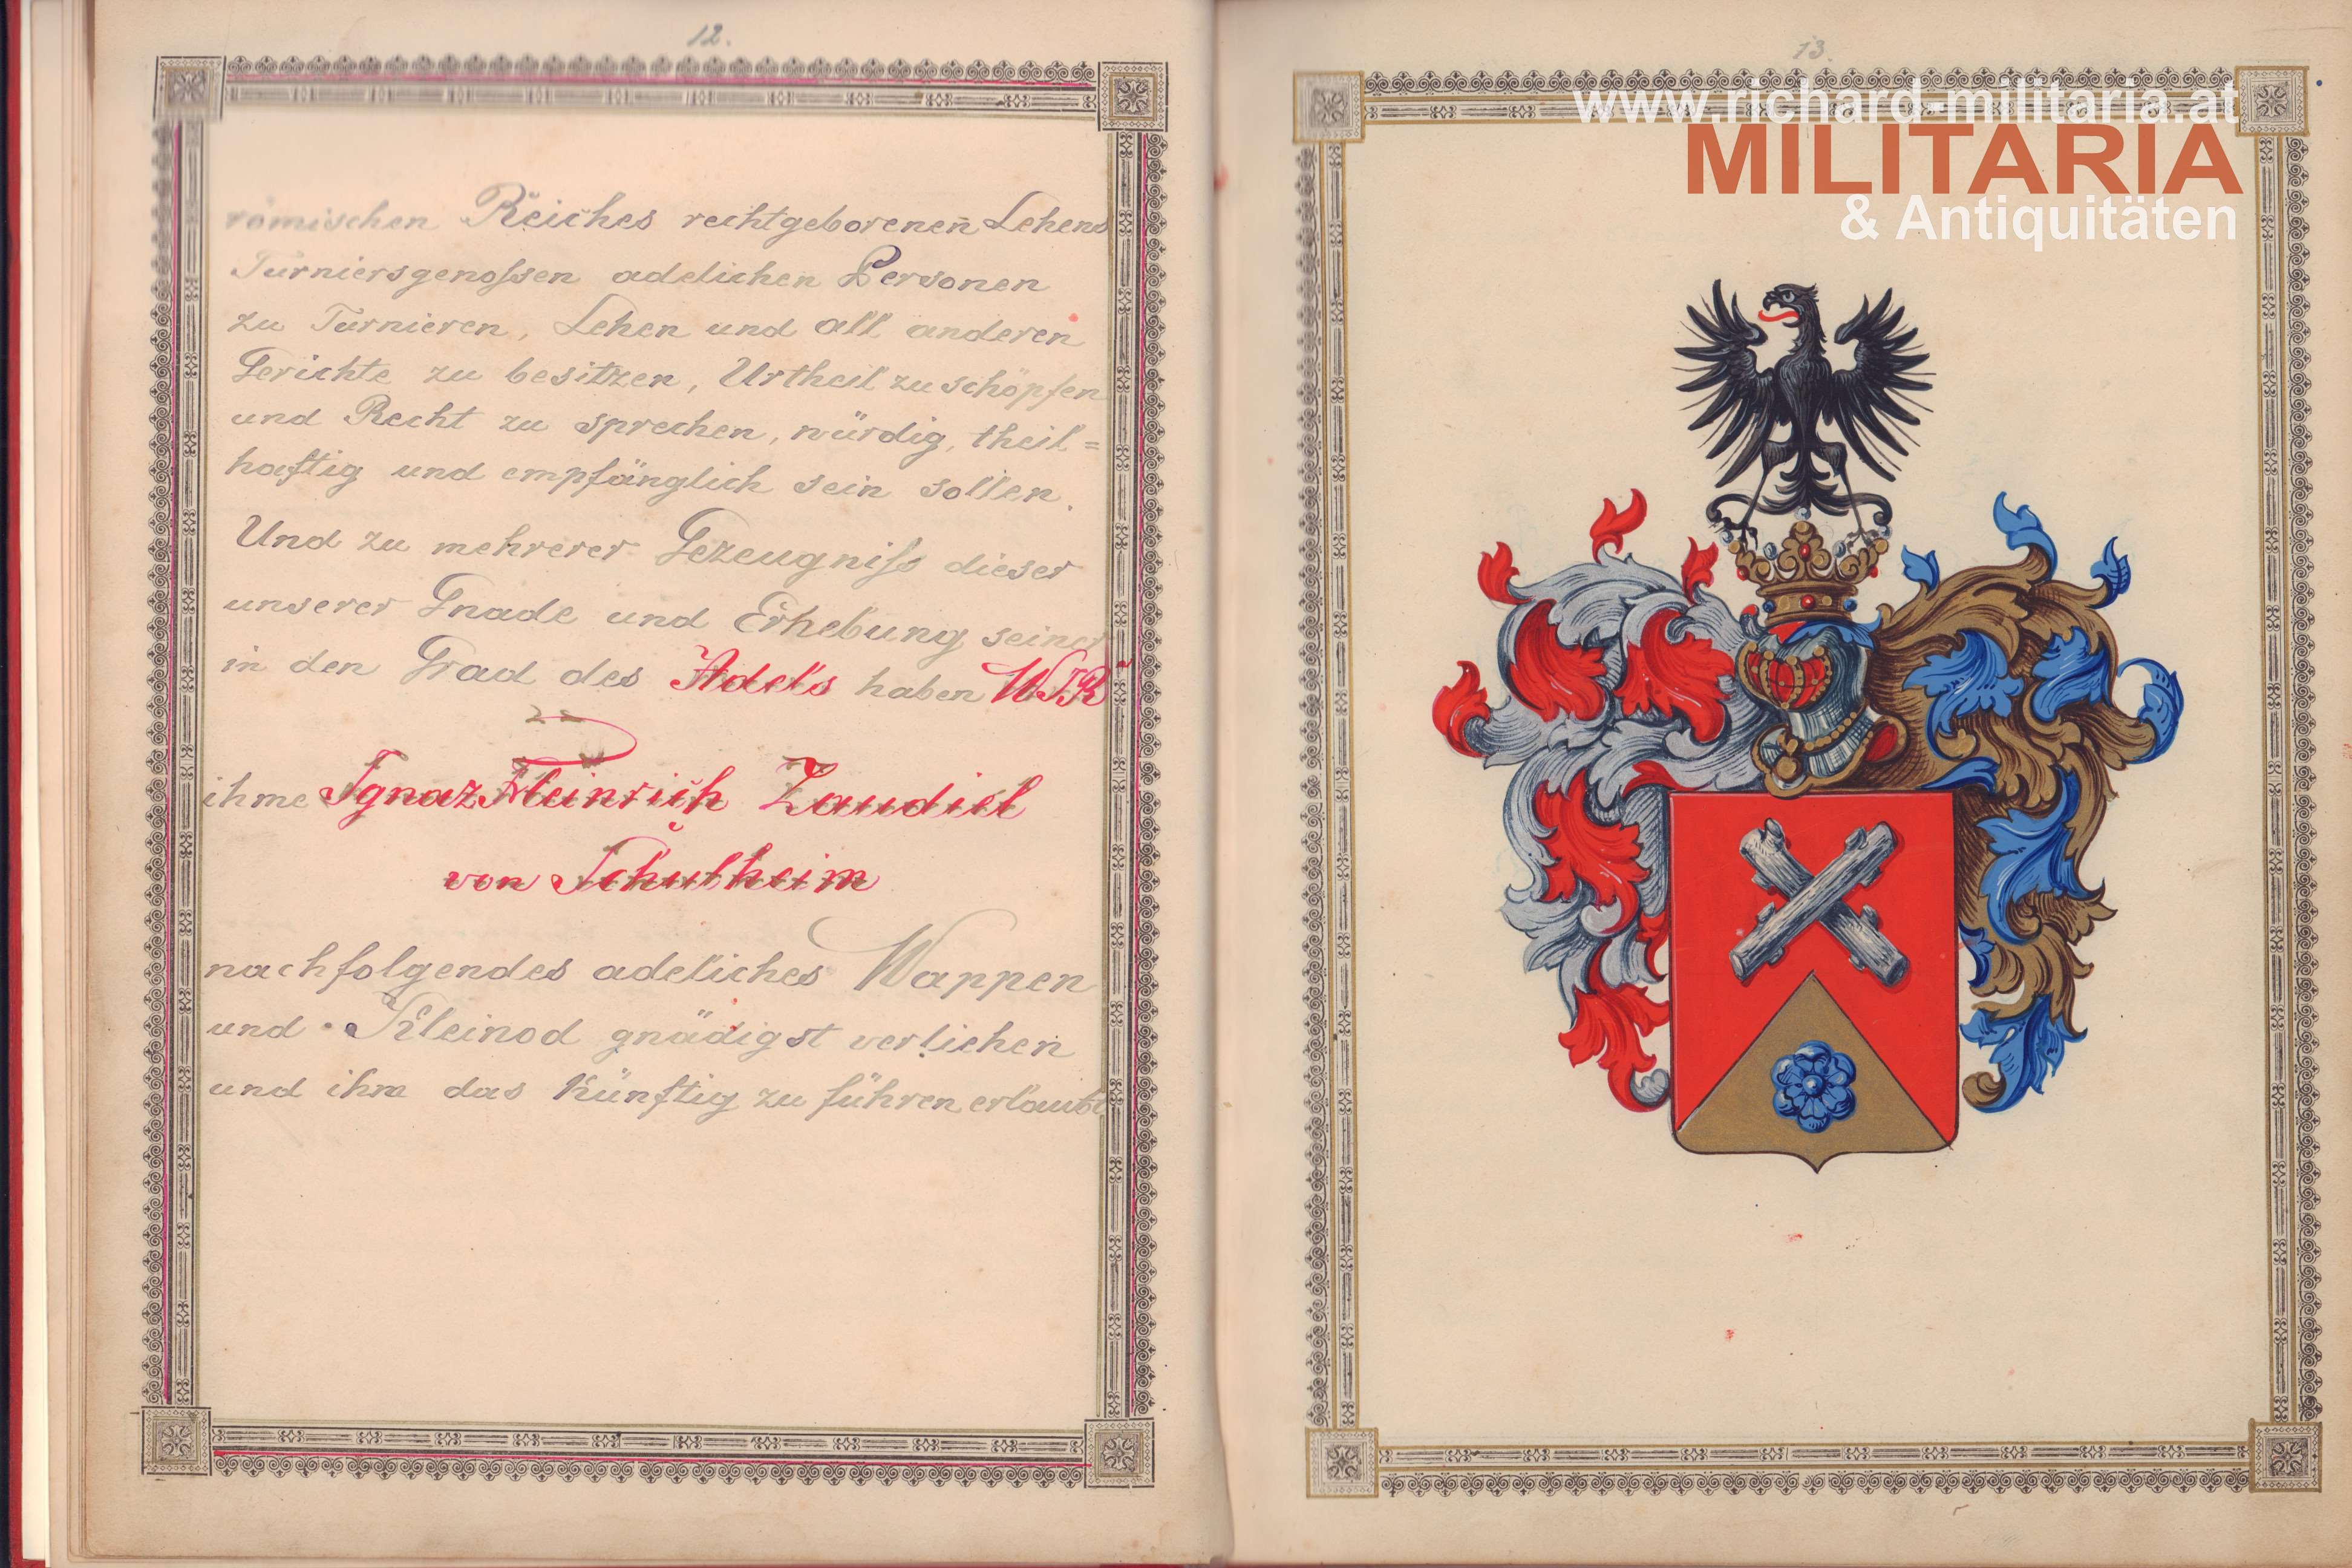 12.
römischen Reiches rechtgeborenen Lehens
Turniersgenoſsen adelichen Personen
zu Turnieren, Lehen und all anderen
Gerichte zu besitzen, Urtheil zu schöpfen
und Recht zu sprechen, würdig, theil=
haftig und empfänglich sein sollen.
Und zu mehrerer Gezeugniſs dieser
unserer Gnade und Erhebung seiner
in den Grad des Adels haben WIR
ihme Ignaz Heinrich Zaudiel
von Schultheim
nachfolgendes adeliches Wappen
und Kleinod gnädigst verliehen
und ihm das künftig zu führen erlaubt
13.
www.richard-militaria.at
MILITARIA
& Antiquitäten